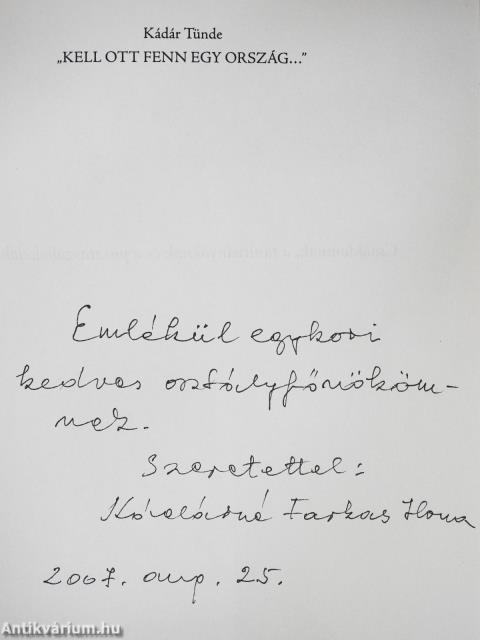 Kádár Tünde
„KELL OTT FENN EGY ORSZÁG...”
Emlékül egykori
kedves osztályfőnököm-
nek.
Szeretettel:
Farkas Ilona
2007. aug. 25.
Antikvárium.hu